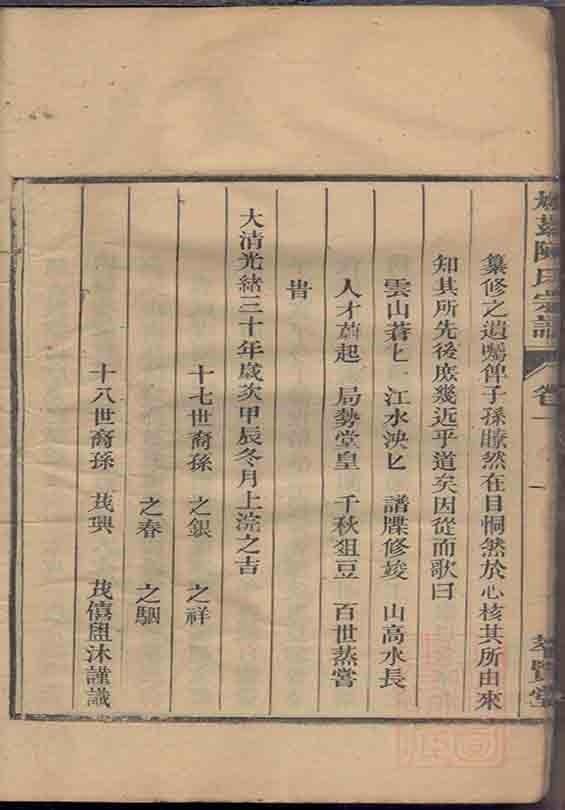 陳氏宗譜 卷一
萃賢堂
纂修之遺囑俾子孫瞭然在目恫然於心核其所由來
知其所先後庶幾近乎道矣因從而歌曰
雲山蒼匕 江水泱匕 譜牒修竣 山高水長
人才蔚起 局勢堂皇 千秋俎豆 百世蒸嘗
旹
大清光緒三十年歲次甲辰冬月上浣之吉
十七世裔孫 之銀 之祥
之春 之駰
十八世裔孫 茂興 茂僖盥沐謹識